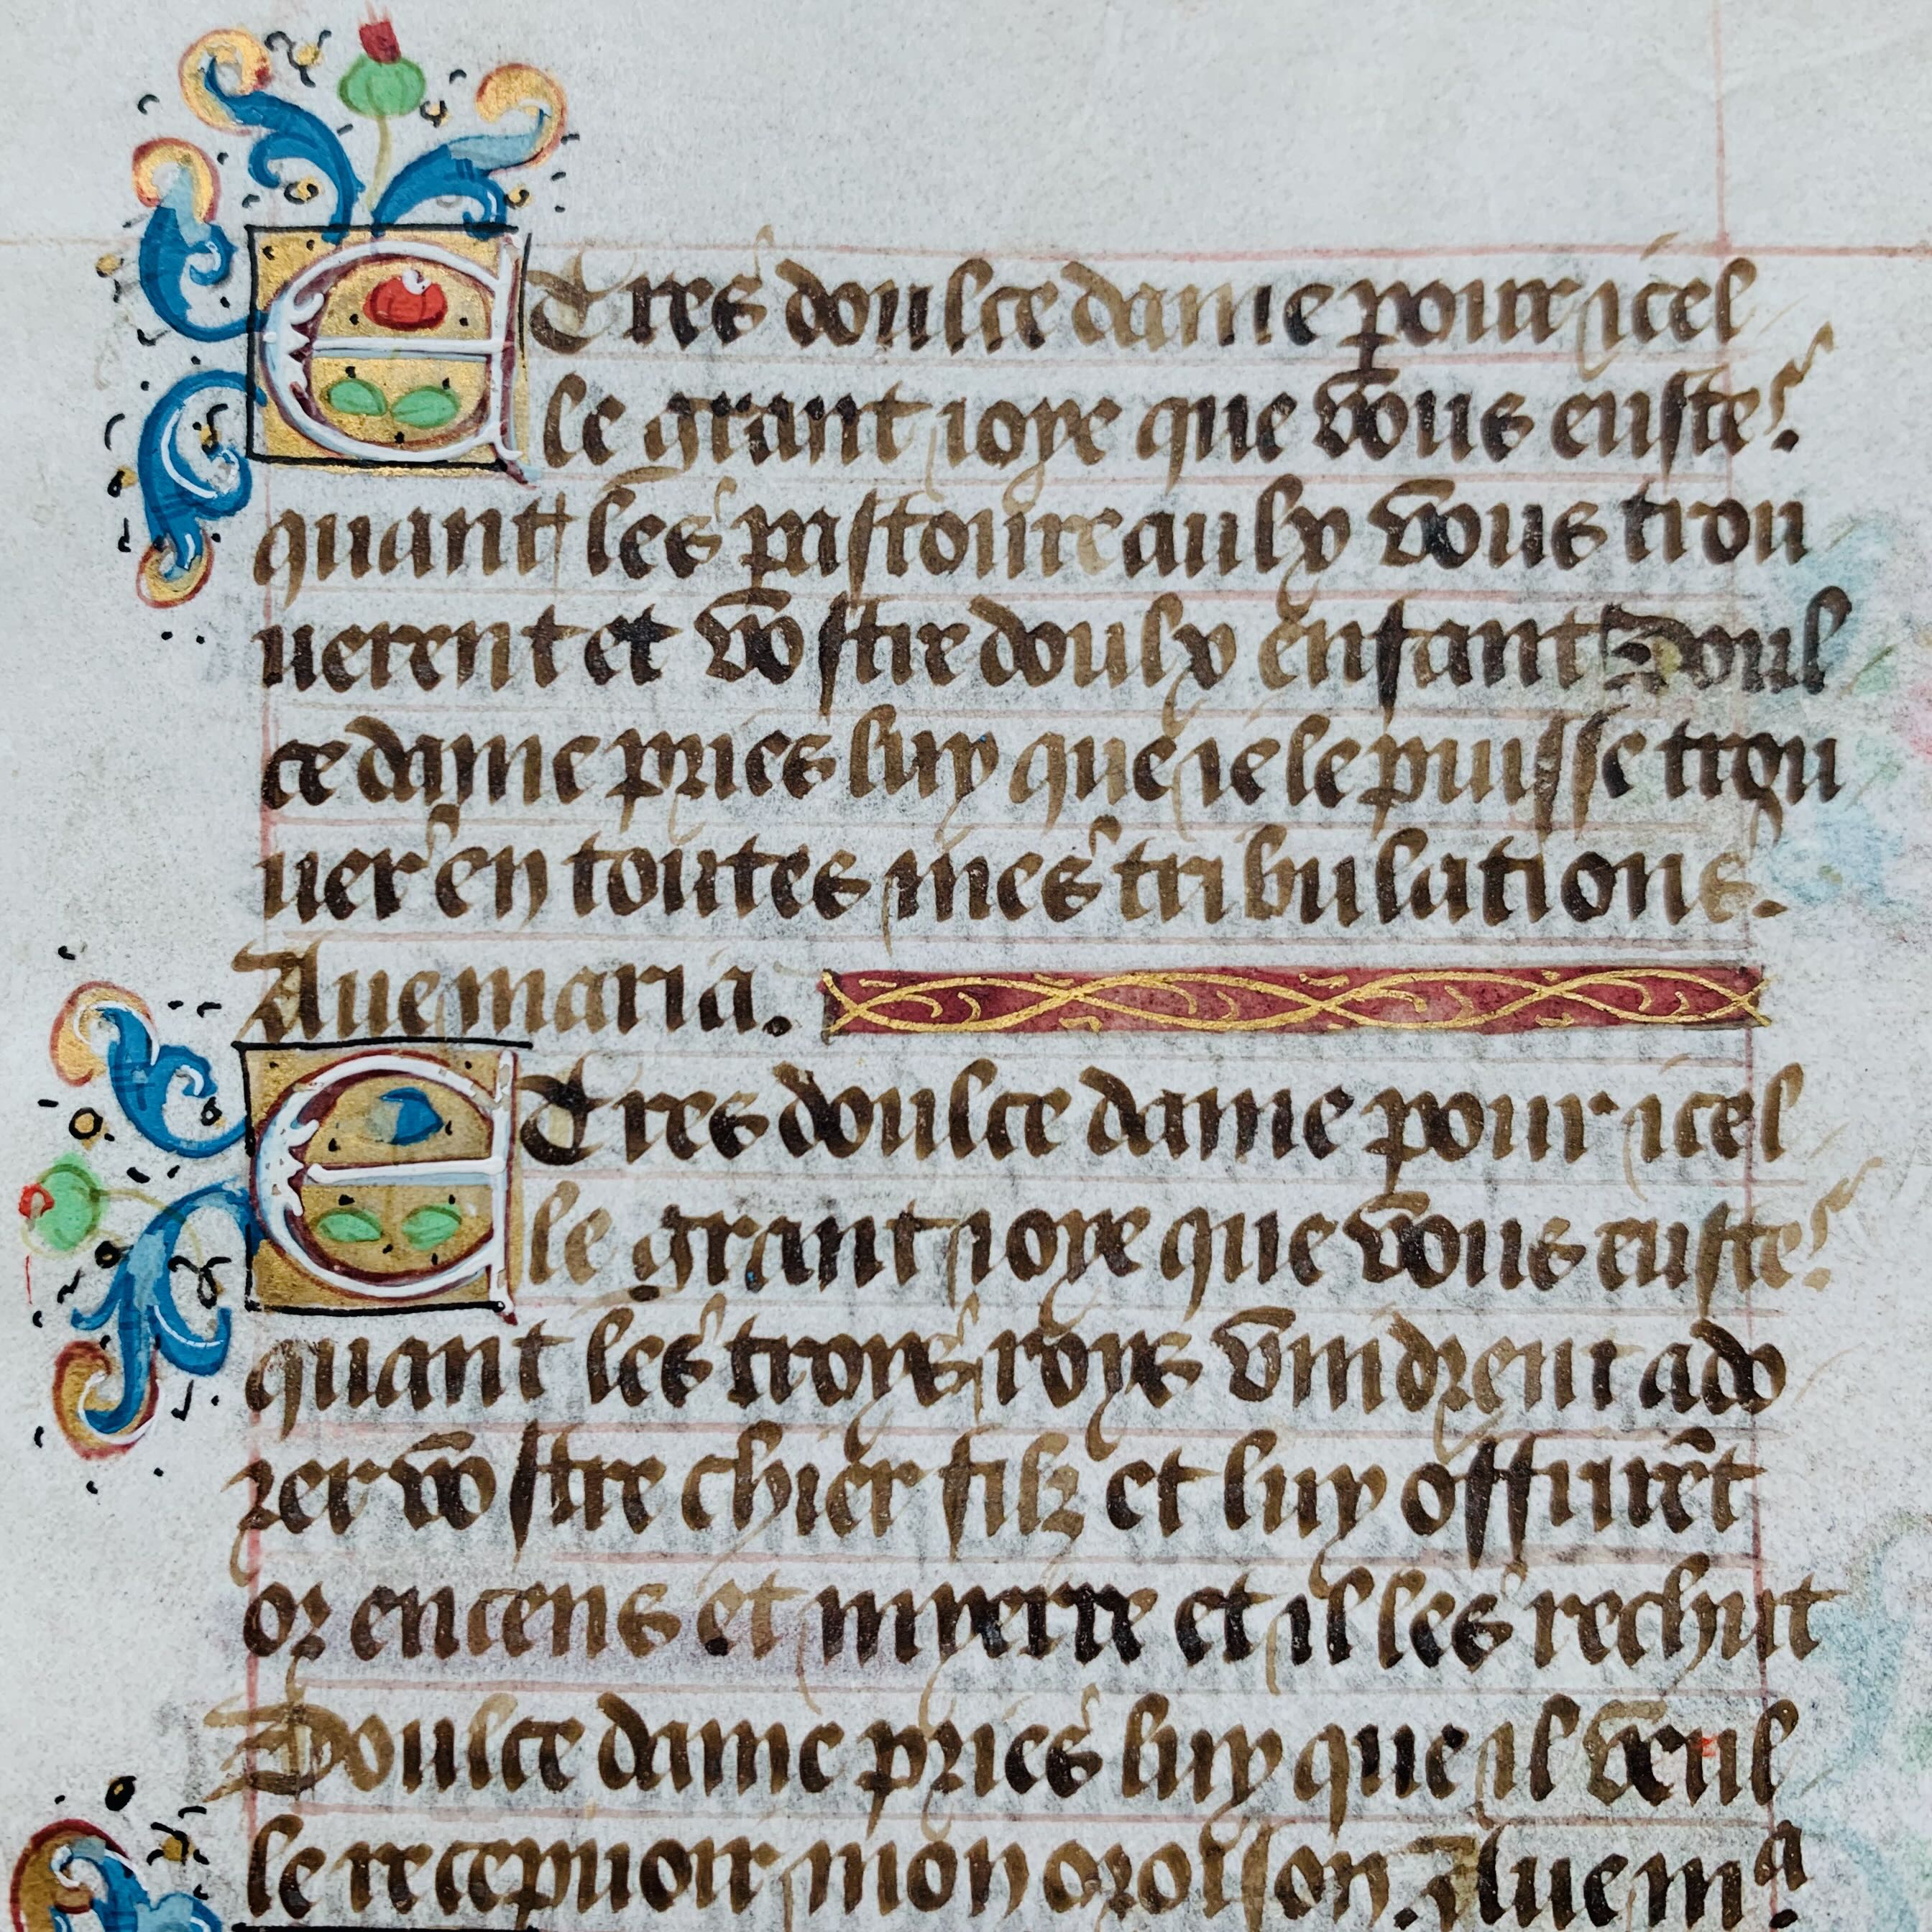 E Tres doulce dame pour icel
le grant ioye que vous eustes.
quant les pastoureaulx vous trou
uerent et vostre doulx enfant Doul
ce dame pries luy que ie le puisse trou
uer en toutes mes tribulations.
Aue maria.
E Tres doulce dame pour icel
le grant ioye que vous eustes.
quant les troys roys vindrent ado
rer vostre chier filz et luy offrirẽt
or encens et myerre et il les rechut
Doulce dame pries luy que il veul
le recepuoir mon oroison. Aue mᵃ.